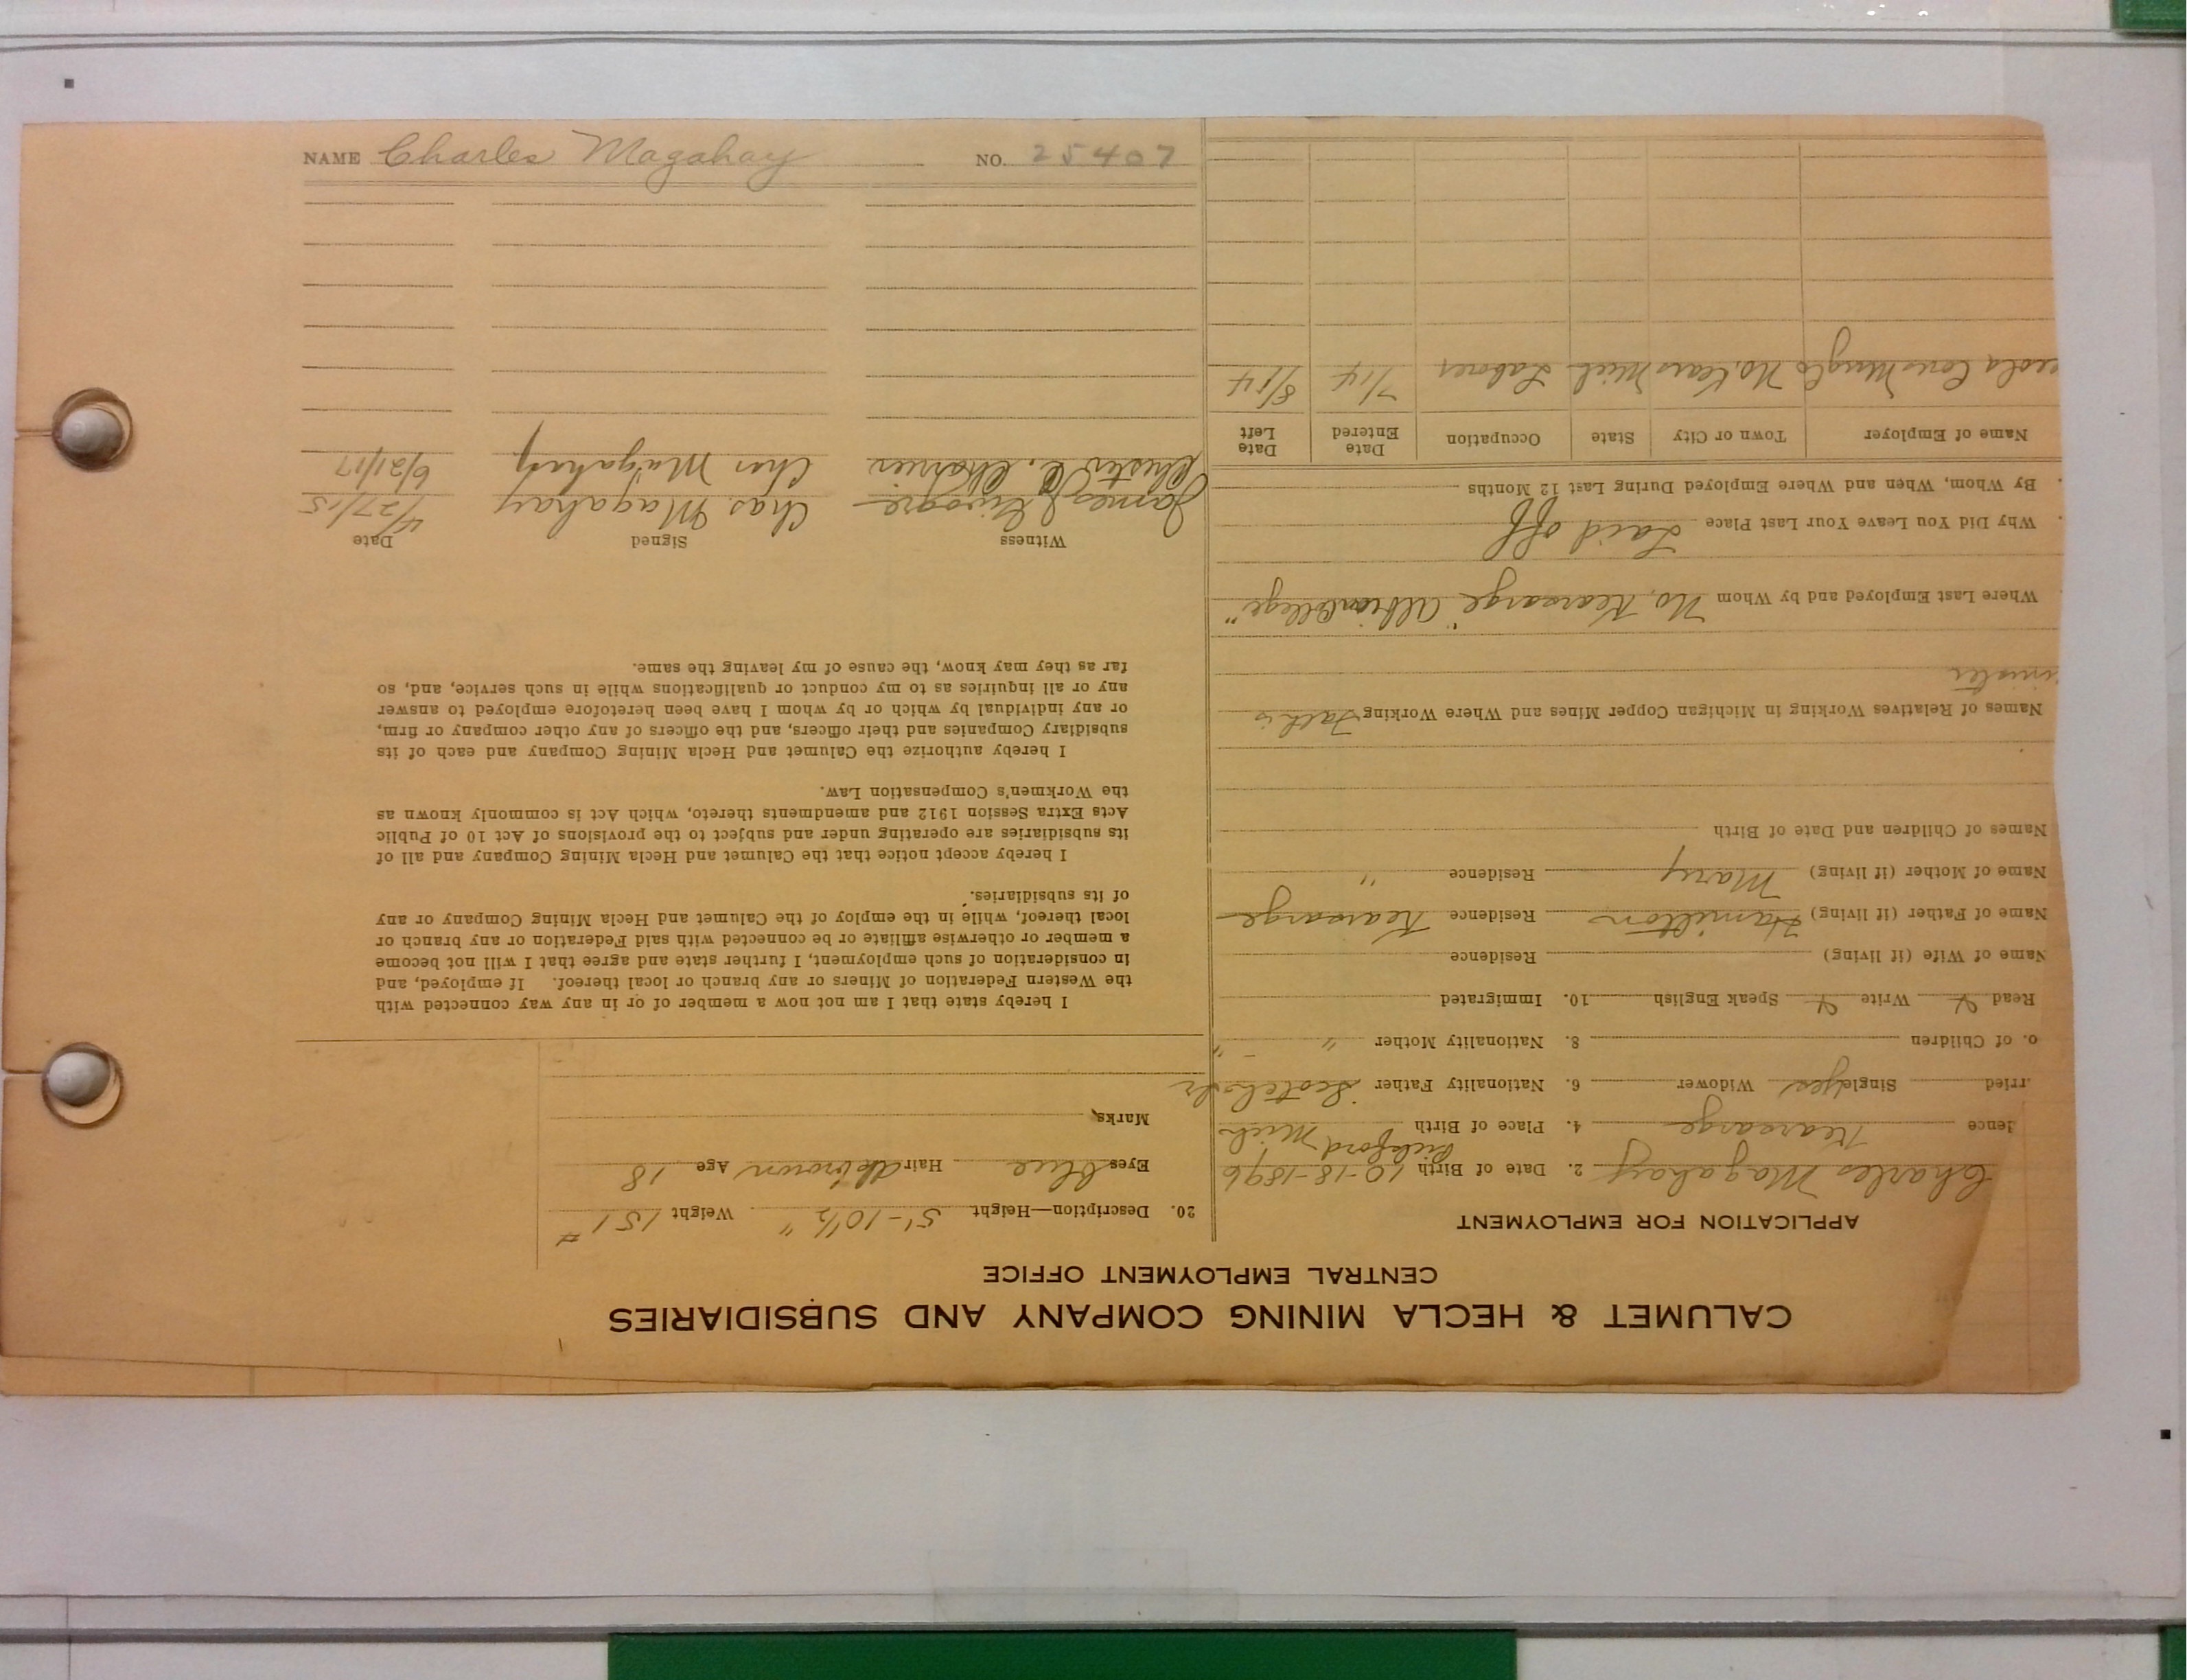 NAME Charles Magahay NO. 25407
CALUMET & HECLA MINING COMPANY AND SUBSIDIARIES
CENTRAL EMPLOYMENT OFFICE
APPLICATION FOR EMPLOYMENT
Charles Magahay 2. Date of Birth 10-18-1896
dence Kearsarge 4. Place of Birth Mich
rried Single yes Widower 6. Nationality Father Scotch
o. of Children 8. Nationality Mother " "
Read Y Write Y Speak English 10. Immigrated
Name of Wife (if living) Residence
Name of Father (if living) Hamilton Residence Kearsarge
Name of Mother (if living) Mary Residence "
Names of Children and Date of Birth
Names of Relatives Working in Michigan Copper Mines and Where Working Fath is
inister
Where Last Employed and by Whom No. Kearsarge "Albion College"
Why Did You Leave Your Last Place Laid off
By Whom, When and Where Employed During Last 12 Months
Name of Employer Town or City State Occupation Date Entered Date Left
ceola Cons Mng Co No. Kears Mich Laborer 7/14 8/14
20. Description—Height 5'-10½" Weight 151 #
Eyes blue Hair dk brown Age 18
Marks
I hereby state that I am not now a member of or in any way connected with
the Western Federation of Miners or any branch or local thereof. If employed, and
in consideration of such employment, I further state and agree that I will not become
a member or otherwise affiliate or be connected with said Federation or any branch or
local thereof, while in the employ of the Calumet and Hecla Mining Company or any
of its subsidiaries.
I hereby accept notice that the Calumet and Hecla Mining Company and all of
its subsidiaries are operating under and subject to the provisions of Act 10 of Public
Acts Extra Session 1912 and amendments thereto, which Act is commonly known as
the Workmen's Compensation Law.
I hereby authorize the Calumet and Hecla Mining Company and each of its
subsidiary Companies and their officers, and the officers of any other company or firm,
or any individual by which or by whom I have been heretofore employed to answer
any or all inquiries as to my conduct or qualifications while in such service, and, so
far as they may know, the cause of my leaving the same.
Witness Signed Date
James J Chas. Magahay 4/27/15
Chester C. Chas Magahay 6/21/17